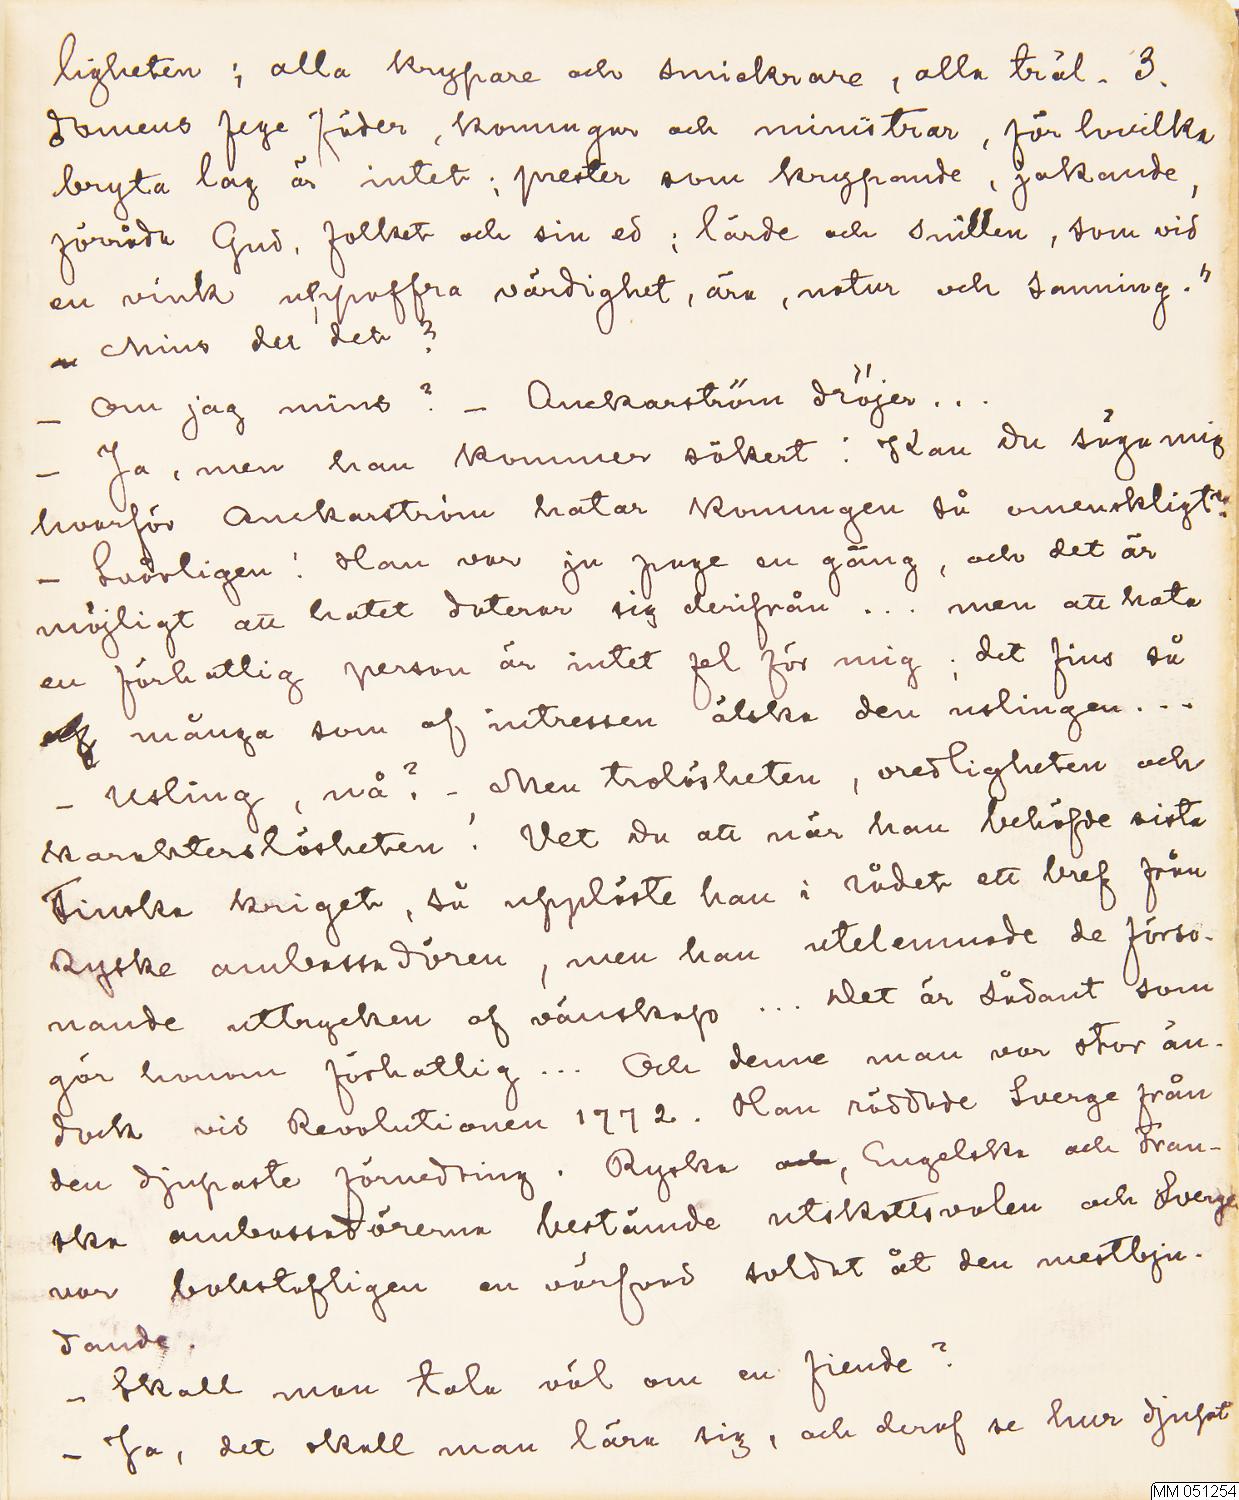 ligheten; alla krypare och smickrare, alla träl- 3.
domens fege fäder, konungar och ministrar, för hvilka
bryta lag är intet; prester som krypande, jakande,
förråda Gud, folket och sin ed; lärde och snillen, som vid
en vink uppoffra värdighet, ära, natur och sanning."
– Mins du det?
– Om jag mins? – Anckarström dröjer...
– Ja, men han kommer säkert! Kan Du säga mig
hvarför Anckarström hatar konungen så omenskligt?
– Svårligen! Han var ju page en gång, och det är
möjligt att hatet daterar sig derifrån... men att hata
en förhatlig person är intet fel för mig; det fins så
många som af intressen älska den uslingen...
– Usling, nå? – Men trolösheten, oredligheten och
karakterslösheten! Vet Du att när han behöfde sista
Finska kriget, så uppläste han i rådet ett bref från
Ryske ambassadören, men han utelemnade de förso-
nande uttrycken af vänskap... Det är sådant som
gör honom förhatlig... Och denne man var stor än-
dock vid Revolutionen 1772. Han räddade Sverge från
den djupaste förnedring. Ryska och, Engelska och Fran-
ska ambassadörerna bestämde utskottsvalen och Sverge
var bokstafligen en värfvad soldat åt den mestbju-
dande.
– Skall man tala väl om en fiende?
– Ja, det skall man lära sig, och deraf se hur djupt
MM 051254